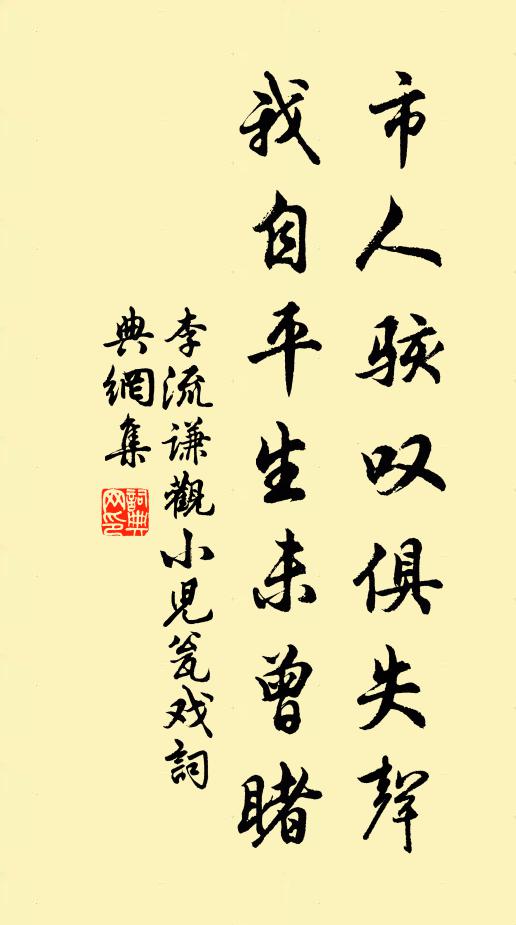 市人骇叹俱失聲
我自平生未曾睹
李流谦觀小児瓮戏詞
典網集
詞典网印